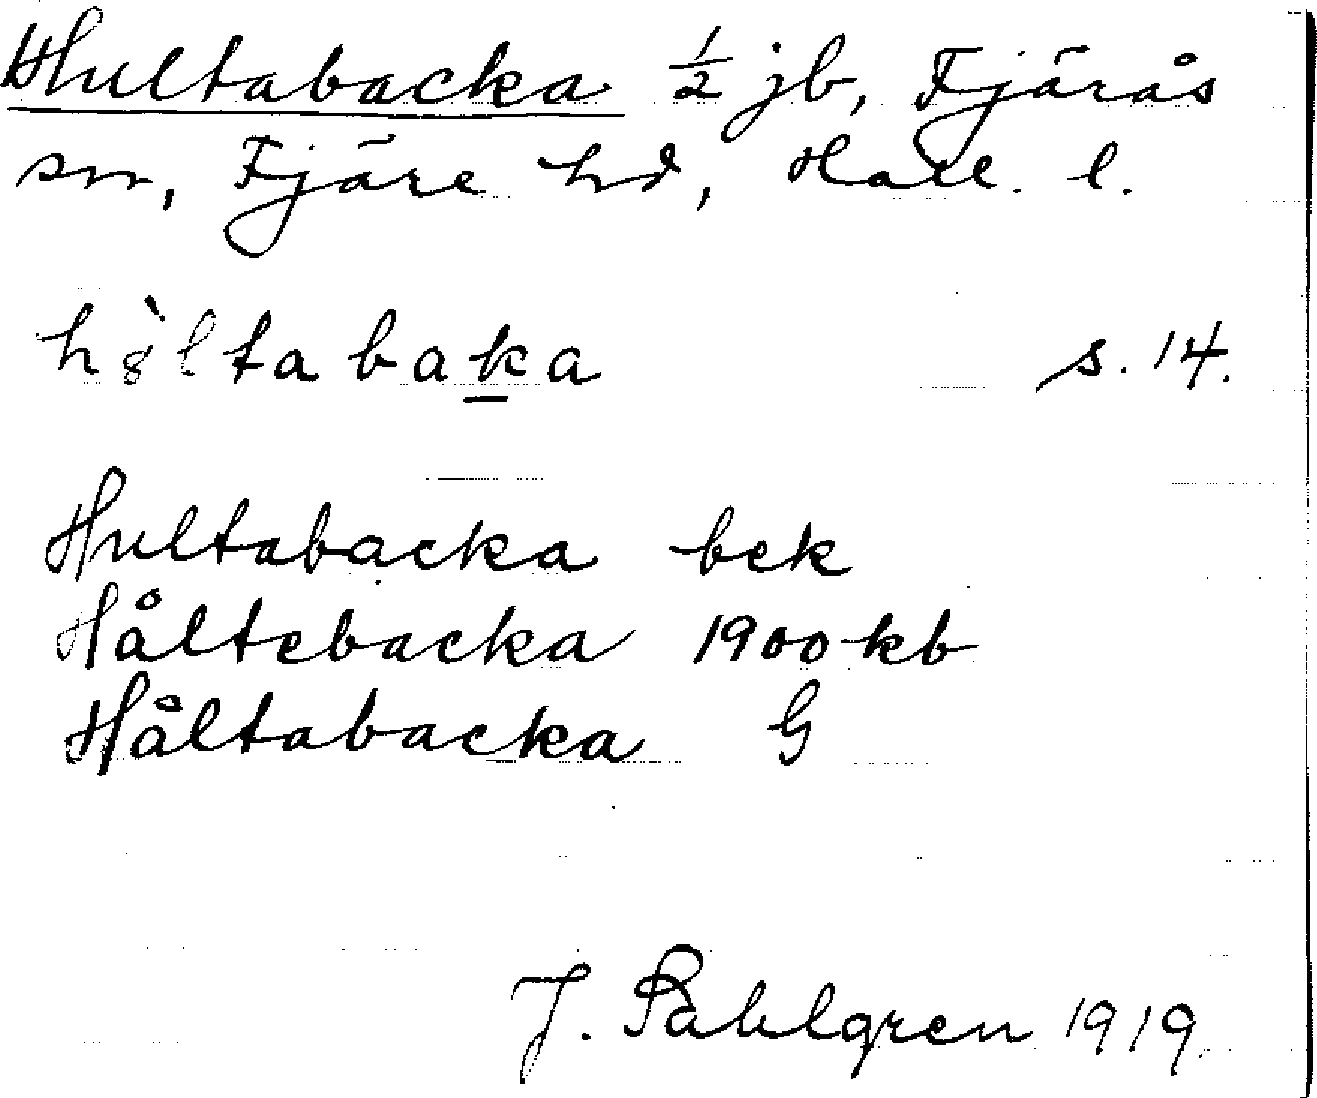 Hultabacka 1/2 jb, Fjärås
sn, Fjäre hd, Hall. l.
hòltabaka s. 14.
Hultabacka bek
Håltebacka 1900 kb
Håltabacka G
J. Sahlgren 1919